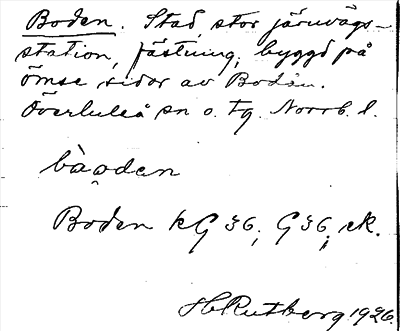 Boden. Stad, stor järnvägs-
station, fästning, byggd på
ömse sidor av Bodån.
Överluleå sn o. tg. Norrb. l.
bàọden
Boden kG 36, G 36, ek.
H Rutberg 1926.